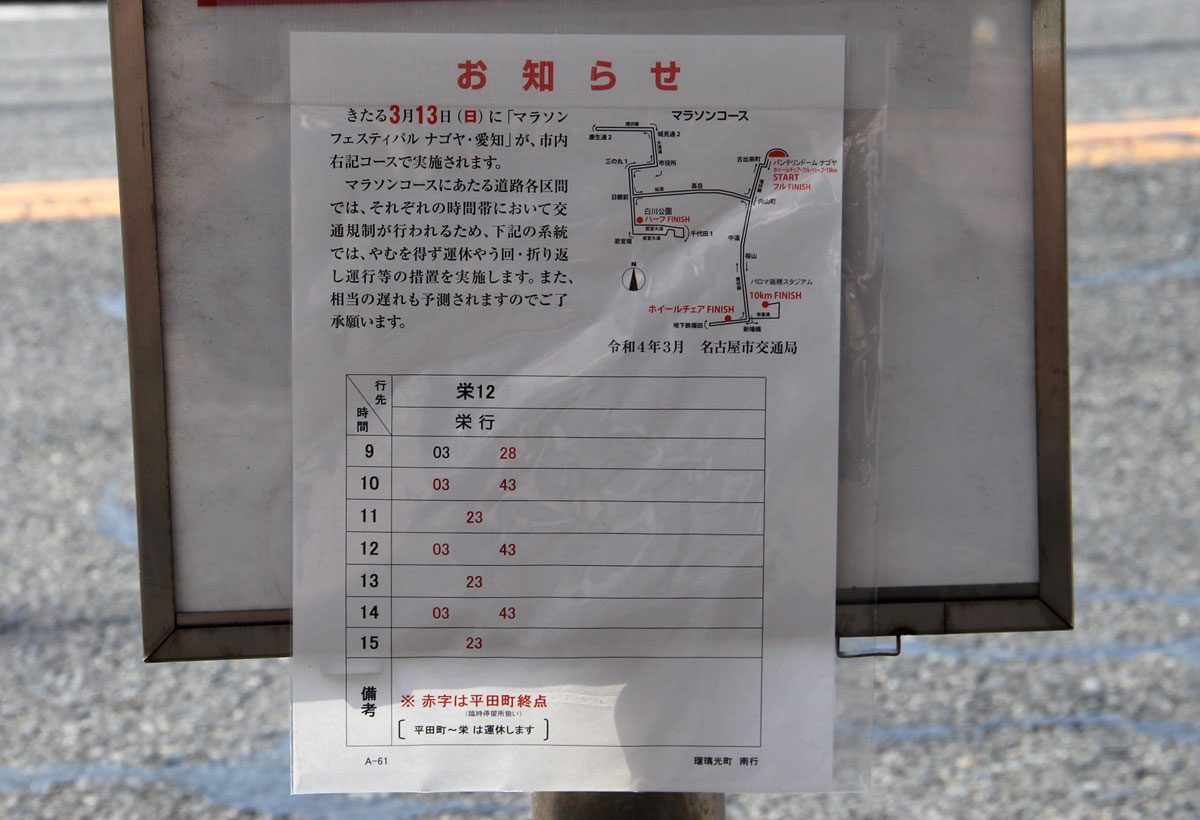 お知らせ
きたる3月13日(日)に「マラソン
フェスティバル ナゴヤ・愛知」が、市内
右記コースで実施されます。
マラソンコースにあたる道路各区間
では、それぞれの時間帯において交
通規制が行われるため、下記の系統
では、やむを得ず運休やう回・折り返
し運行等の措置を実施します。また、
相当の遅れも予測されますのでご了
承願います。
マラソンコース
城見通2
三の丸1
市役所
古出来町
バンテリンドーム ナゴヤ
ホイールチェア・フル・ハーフ・10km
START
フル FINISH
高岳
日銀前
向山町
白川公園
ハーフ FINISH
若宮大通
若宮大通
若宮南
千代田1
中道
桜山
N
パロマ瑞穂スタジアム
10km FINISH
ホイールチェア FINISH
地下鉄堀田
新瑞橋
令和4年3月 名古屋市交通局
行先
時間
栄12
栄 行
9 03 28
10 03 43
11 23
12 03 43
13 23
14 03 43
15 23
備考
※ 赤字は平田町終点
(臨時停留所扱い)
[ 平田町〜栄 は運休します ]
A-61
瑠璃光町 南行